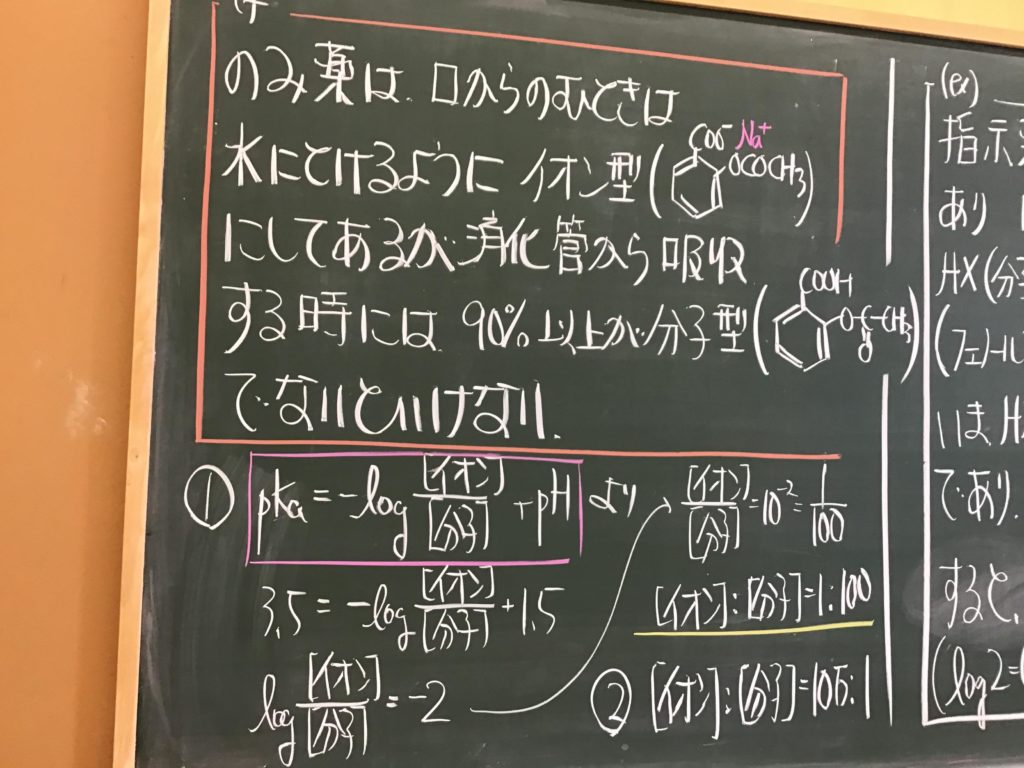 のみ薬は、口からのむときは
水にとけるように イオン型( COO⁻ Na⁺ OCOCH₃ )
にしてあるが 消化管から 吸収
する時には 90%以上が分子型( COOH O-C-CH₃ O )
でないといけない.
① pKa = -log [イオン]/[分子] + pH より
3.5 = -log [イオン]/[分子] + 1.5
log [イオン]/[分子] = -2
[イオン]/[分子] = 10⁻² = 1/100
[イオン]:[分子]=1:100
② [イオン]:[分子]=10⁵:1
(ex)
指示
あり
HX(分子
(フェノール
いま H
であり.
すると、
(log2=